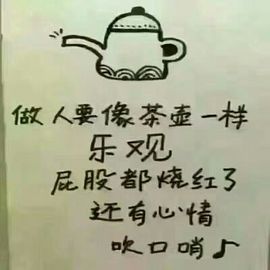 做人要像茶壶一样
乐观
屁股都烧红了
还有心情
吹口哨♪